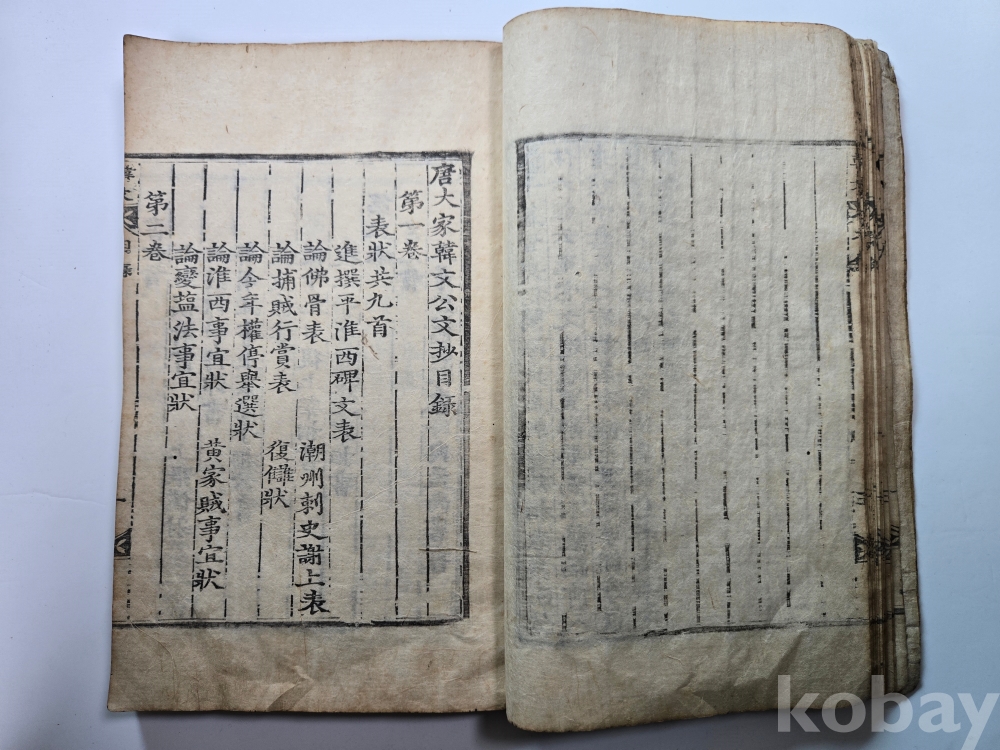 唐大家韓文公文抄目錄
第一卷
表狀共九首
進撰平淮西碑文表
論佛骨表 潮州刺史謝上表
論捕賊行賞表 復讎狀
論今年權停舉選狀
論淮西事宜狀 黄家賊事宜狀
論變盐法事宜狀
第二卷
kobay